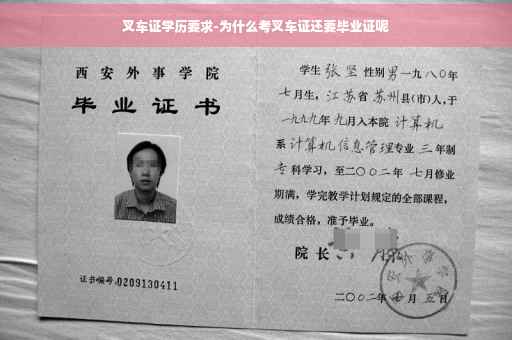 叉车证学历要求-为什么考叉车证还要毕业证呢
西安外事学院
毕业证书
证书编号:0209130411
学生 张坚 性别 男 一九八〇年
七月生，江苏省 苏州县(市)人，于
一九九九年 九月入本院 计算机
系 计算机信息管理专业 三 年制
专 科学习，至二〇〇二年 七月修业
期满，学完教学计划规定的全部课程，
成绩合格，准予毕业。
院长
二〇〇二年 月 五日